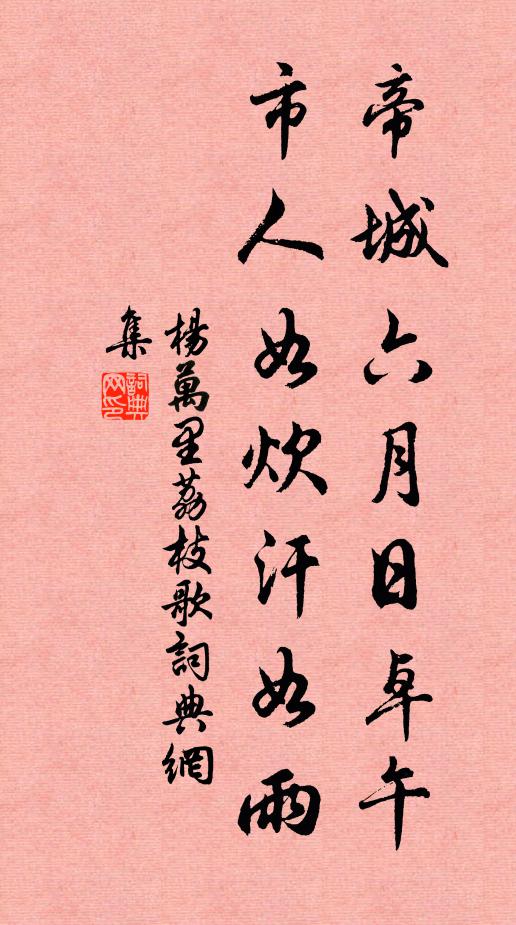 帝城六月日卓午
市人如炊汗如雨
楊萬里荔枝歌詞典網
集
詞典
网印